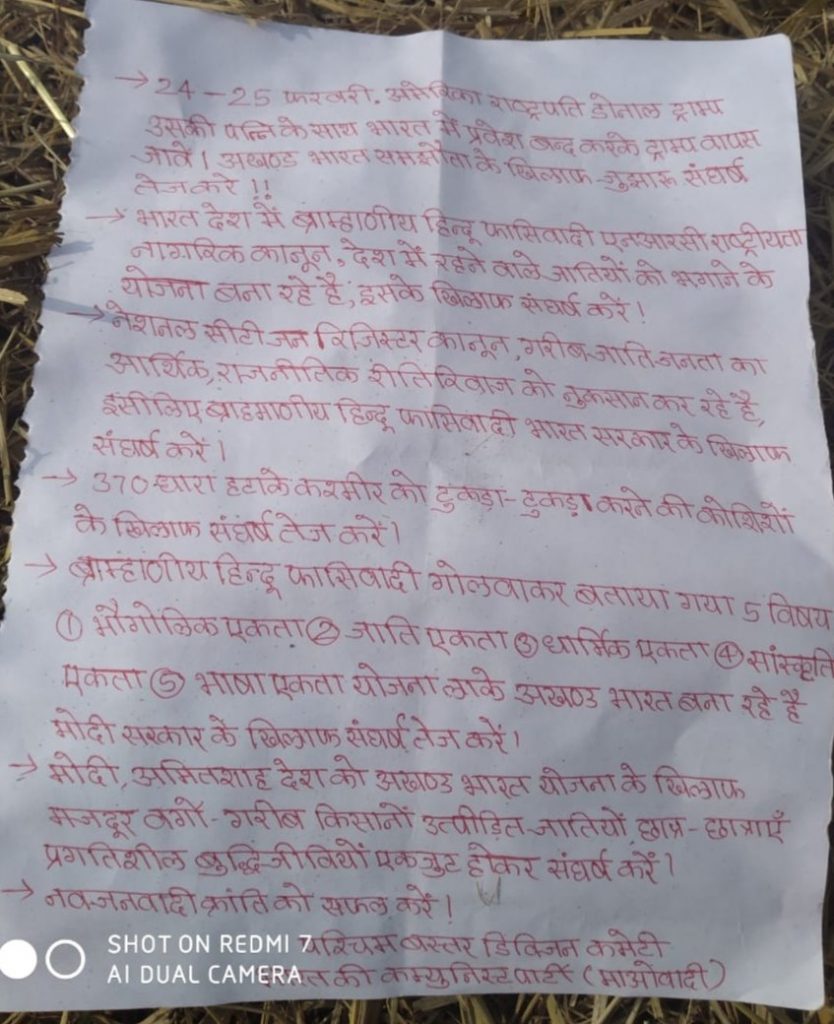 → 24 - 25 फरवरी. अमेरिका राष्ट्रपति डोनाल ट्राम्प
उसकी पत्नि के साथ भारत में प्रवेश बन्द करके ट्राम्प वापस
जावे। अखण्ड भारत समझौता के खिलाफ जुझारू संघर्ष
तेज करे !!
→ भारत देश में ब्राम्हाणीय हिन्दू फासिवादी एनआरसी राष्ट्रीयता
नागरिक कानून, देश में रहने वाले जातियों को भगाने के
योजना बना रहे है, इसके खिलाफ संघर्ष करें।
→ नेशनल सीटीजन रिजिस्टर कानून, गरीब जाति जनता का
आर्थिक, राजनीतिक रीतिरिवाज को नुकसान कर रहे है,
इसीलिए ब्राहमाणीय हिन्दू फासिवादी भारत सरकार के खिलाफ
संघर्ष करें।
→ 370 धारा हटाके कश्मीर को टुकड़ा - टुकड़ा करने की कोशिशों
के खिलाफ संघर्ष तेज करें।
→ ब्राम्हाणीय हिन्दू फासिवादी गोलवाकर बताया गया 5 विषय
① भौगोलिक एकता ② जाति एकता ③ धार्मिक एकता ④ सांस्कृति
एकता ⑤ भाषा एकता योजना लाके अखण्ड भारत बना रहे है
मोदी सरकार के खिलाफ संघर्ष तेज करें।
→ मोदी, अमितशाह देश को अखण्ड भारत योजना के खिलाफ
मजदूर वर्गो - गरीब किसानों उत्पीड़ित जातियों, छात्र - छात्राएँ
प्रगतिशील बुद्धिजीवियों एकजुट होकर संघर्ष करें।
→ नवजनवादी क्रांति को सफल करें!
पश्चिम बस्तर डिविजन कमेटी
की कम्युनिस्ट पार्टी (माओवादी)
SHOT ON REDMI 7
AI DUAL CAMERA